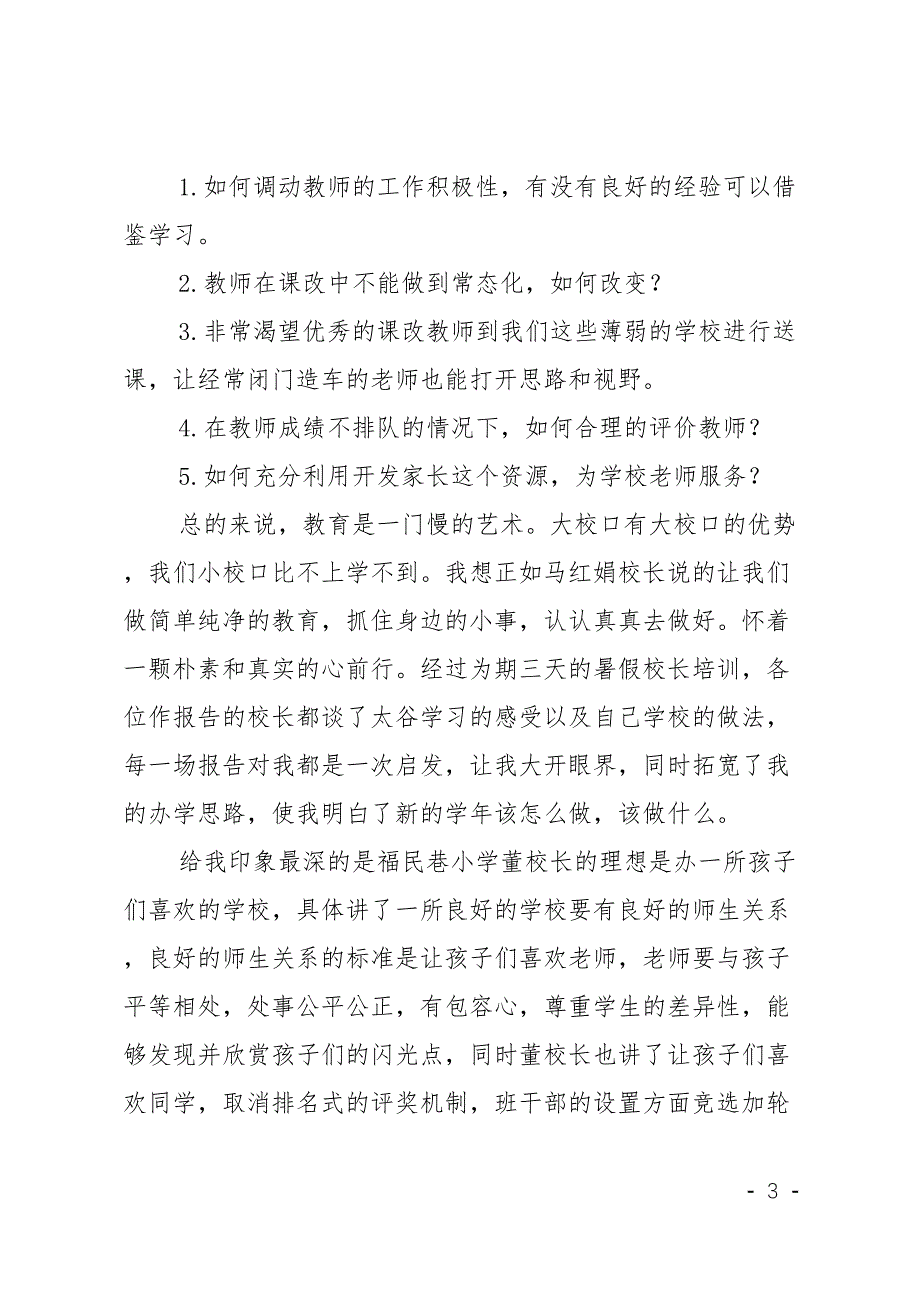 1.如何调动教师的工作积极性，有没有良好的经验可以借
鉴学习。
2.教师在课改中不能做到常态化，如何改变？
3.非常渴望优秀的课改教师到我们这些薄弱的学校进行送
课，让经常闭门造车的老师也能打开思路和视野。
4.在教师成绩不排队的情况下，如何合理的评价教师？
5.如何充分利用开发家长这个资源，为学校老师服务？
总的来说，教育是一门慢的艺术。大校口有大校口的优势
，我们小校口比不上学不到。我想正如马红娟校长说的让我们
做简单纯净的教育，抓住身边的小事，认认真真去做好。怀着
一颗朴素和真实的心前行。经过为期三天的暑假校长培训，各
位作报告的校长都谈了太谷学习的感受以及自己学校的做法，
每一场报告对我都是一次启发，让我大开眼界，同时拓宽了我
的办学思路，使我明白了新的学年该怎么做，该做什么。
给我印象最深的是福民巷小学董校长的理想是办一所孩子
们喜欢的学校，具体讲了一所良好的学校要有良好的师生关系
，良好的师生关系的标准是让孩子们喜欢老师，老师要与孩子
平等相处，处事公平公正，有包容心，尊重学生的差异性，能
够发现并欣赏孩子们的闪光点，同时董校长也讲了让孩子们喜
欢同学，取消排名式的评奖机制，班干部的设置方面竞选加轮
- 3 -